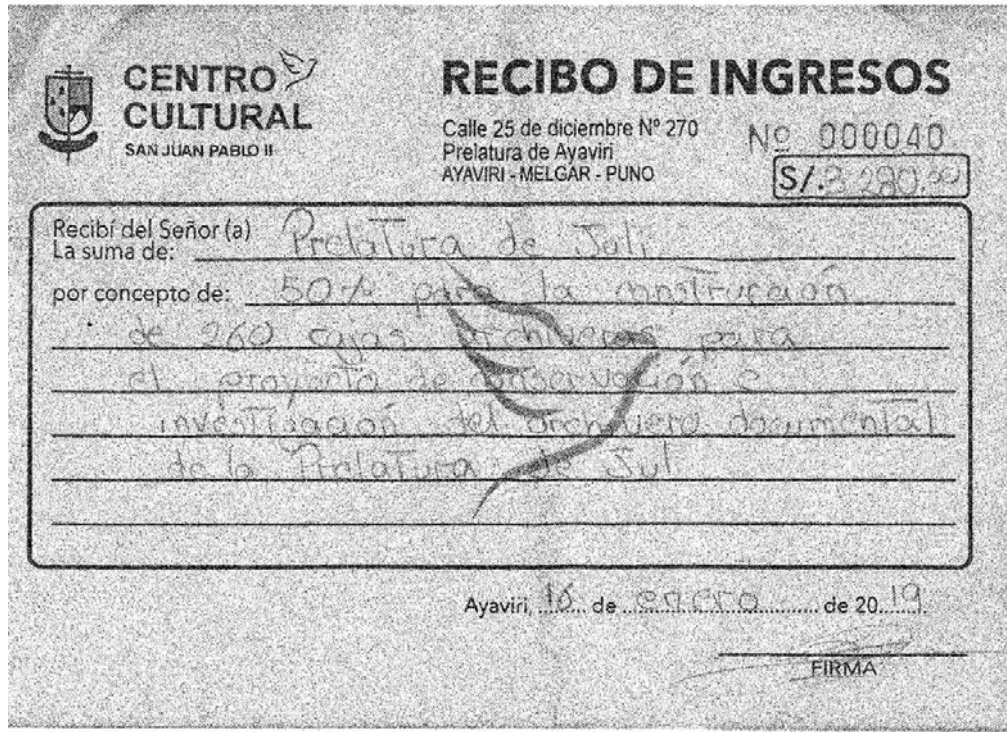 CENTRO
CULTURAL
SAN JUAN PABLO II
RECIBO DE INGRESOS
Calle 25 de diciembre Nº 270
Prelatura de Ayaviri
AYAVIRI - MELGAR - PUNO
Nº 000040
S/. 3 280.00
Recibí del Señor (a) Prelatura de Juli
La suma de:
por concepto de: 50% para la construcción
de 260 cajas archiveras para
el proyecto de conservación e
investigación del archivero documental
de la Prelatura de Jul
Ayaviri, 16 de enero de 2019
FIRMA